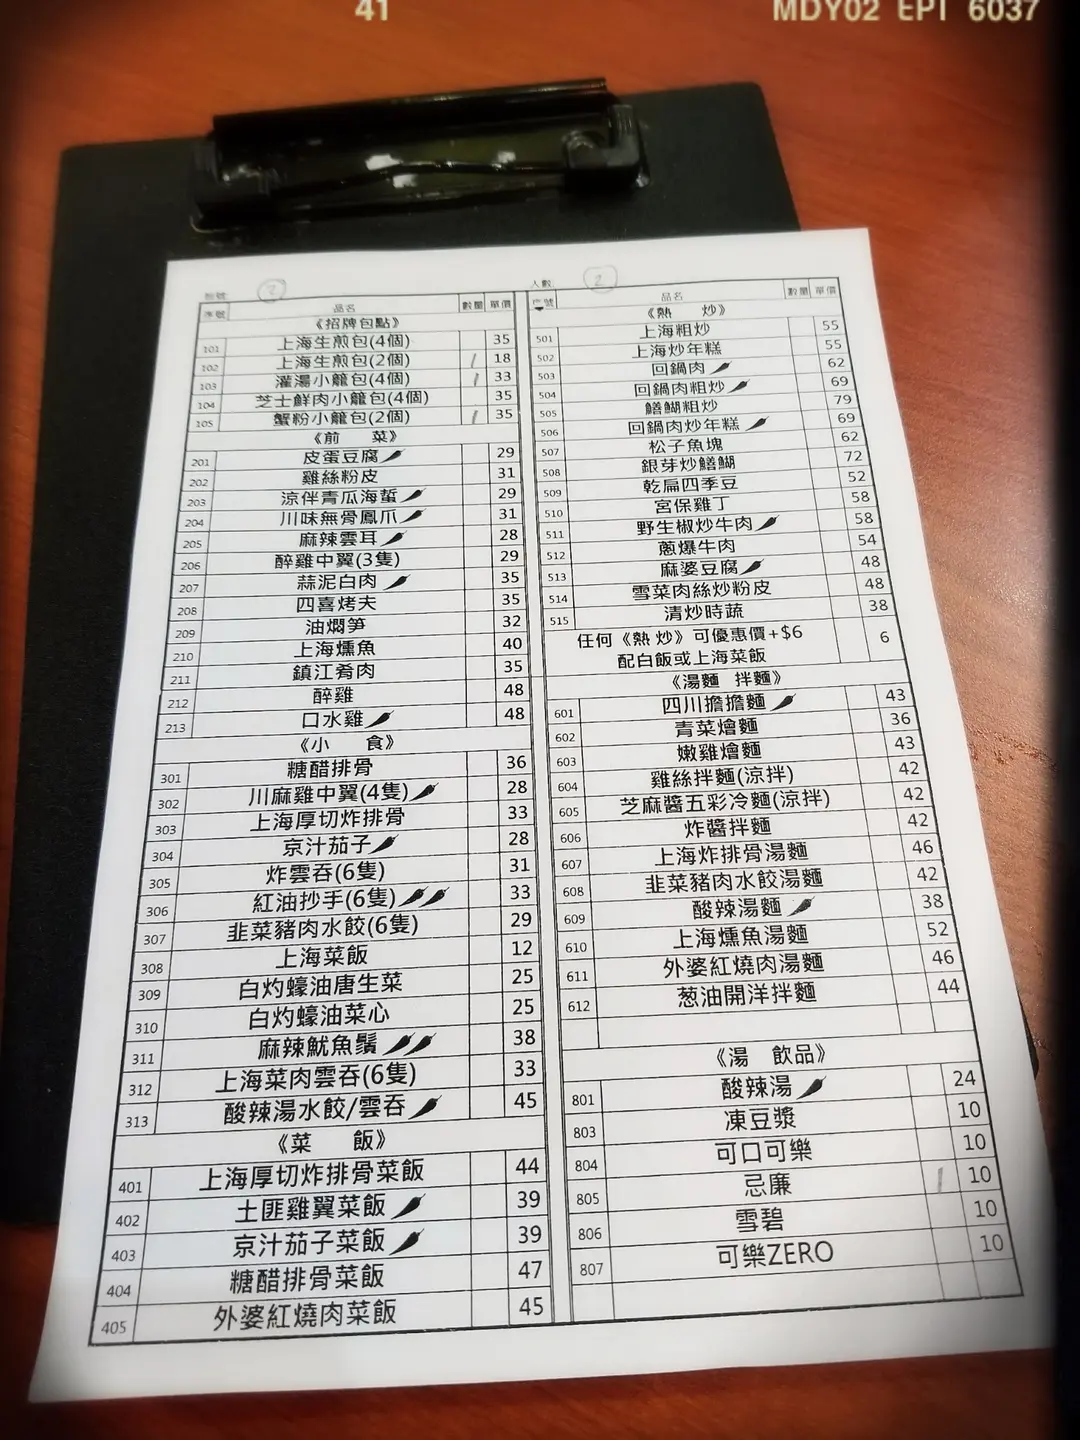 41
MDY02 EPI 6037
枱號 2
序號 品名 數量 單價
《招牌包點》
101 上海生煎包(4個) 35
102 上海生煎包(2個) / 18
103 灌湯小籠包(4個) / 33
104 芝士鮮肉小籠包(4個) 35
105 蟹粉小籠包(2個) / 35
《前 菜》
201 皮蛋豆腐 29
202 雞絲粉皮 31
203 涼伴青瓜海蜇 29
204 川味無骨鳳爪 31
205 麻辣雲耳 28
206 醉雞中翼(3隻) 29
207 蒜泥白肉 35
208 四喜烤夫 35
209 油燜笋 32
210 上海燻魚 40
211 鎮江肴肉 35
212 醉雞 48
213 口水雞 48
《小 食》
301 糖醋排骨 36
302 川麻雞中翼(4隻) 28
303 上海厚切炸排骨 33
304 京汁茄子 28
305 炸雲吞(6隻) 31
306 紅油抄手(6隻) 33
307 韭菜豬肉水餃(6隻) 29
308 上海菜飯 12
309 白灼蠔油唐生菜 25
310 白灼蠔油菜心 25
311 麻辣魷魚鬚 38
312 上海菜肉雲吞(6隻) 33
313 酸辣湯水餃/雲吞 45
《菜 飯》
401 上海厚切炸排骨菜飯 44
402 土匪雞翼菜飯 39
403 京汁茄子菜飯 39
404 糖醋排骨菜飯 47
405 外婆紅燒肉菜飯 45
人數 2
序號 品名 數量 單價
《熱 炒》
501 上海粗炒 55
502 上海炒年糕 55
503 回鍋肉 62
504 回鍋肉粗炒 69
505 鱔餬粗炒 79
506 回鍋肉炒年糕 69
507 松子魚塊 62
508 銀芽炒鱔餬 72
509 乾扁四季豆 52
510 宮保雞丁 58
511 野生椒炒牛肉 58
512 蔥爆牛肉 54
513 麻婆豆腐 48
514 雪菜肉絲炒粉皮 48
515 清炒時蔬 38
任何《熱 炒》可優惠價+$6
配白飯或上海菜飯 6
《湯麵 拌麵》
601 四川擔擔麵 43
602 青菜燴麵 36
603 嫩雞燴麵 43
604 雞絲拌麵(涼拌) 42
605 芝麻醬五彩冷麵(涼拌) 42
606 炸醬拌麵 42
607 上海炸排骨湯麵 46
608 韭菜豬肉水餃湯麵 42
609 酸辣湯麵 38
610 上海燻魚湯麵 52
611 外婆紅燒肉湯麵 46
612 葱油開洋拌麵 44
《湯 飲品》
801 酸辣湯 24
803 凍豆漿 10
804 可口可樂 10
805 忌廉 / 10
806 雪碧 10
807 可樂ZERO 10